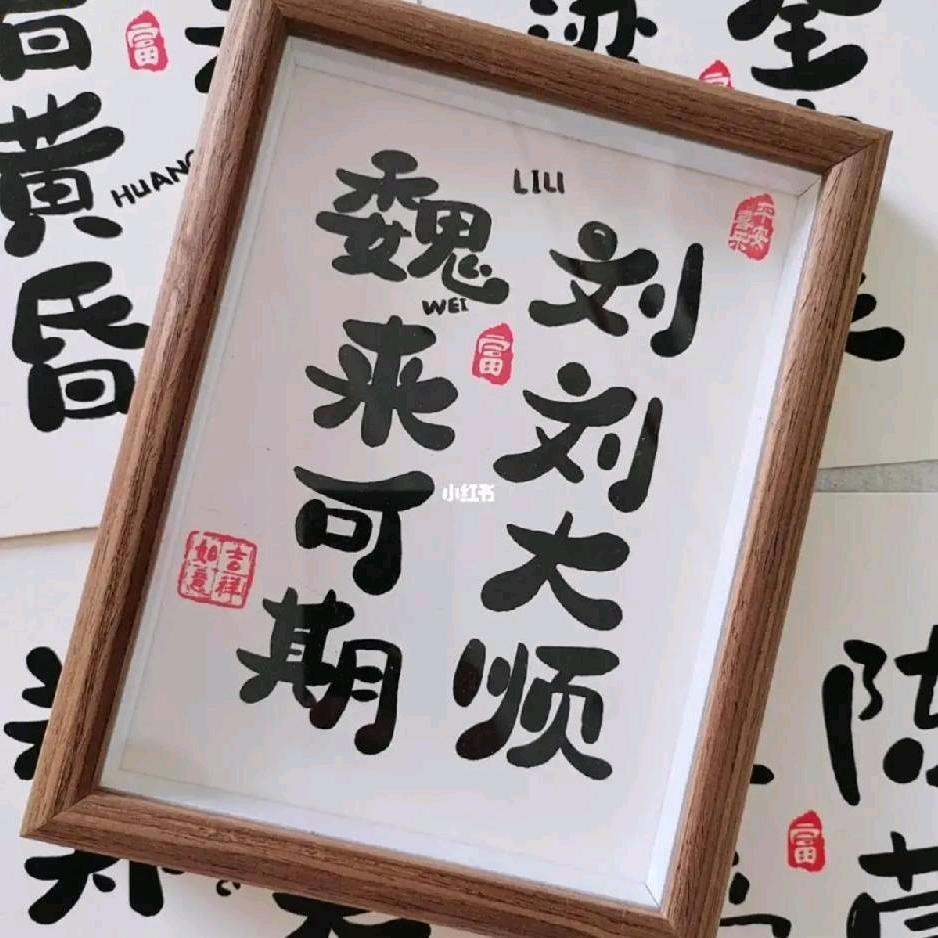 刘刘大顺
魏来可期
LIU
WEI
平安
喜乐
富
吉祥
如意
小红书
黄昏
HUANG
富
富
陈